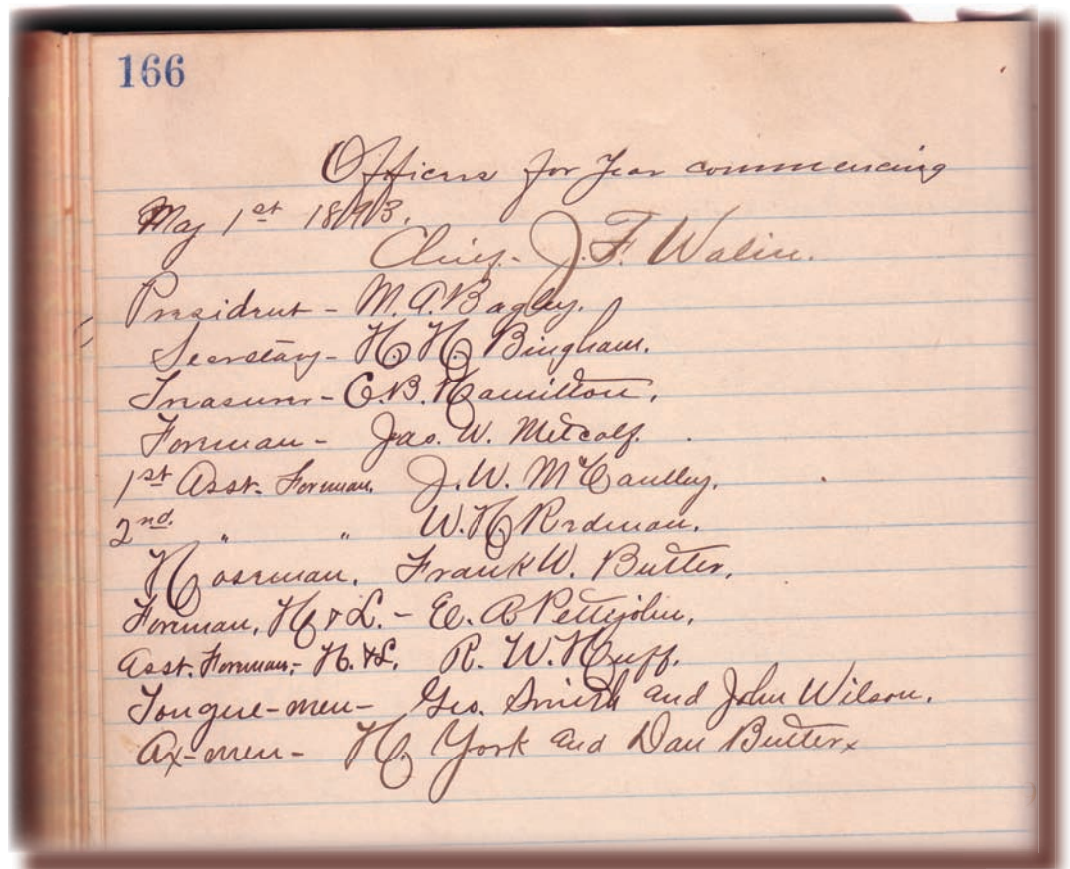 166
Officers for Year commencing
May 1st 1893.
Chief - J. F. Walin.
President - M. A. Bagley.
Secretary - H. H. Bingham.
Treasurer - C. B. Hamilton.
Foreman - Jas. W. Metcalf.
1st Asst. Foreman. J. W. McCaulley.
2nd. " " W. H. Redman.
Hoseman. Frank W. Butter.
Foreman, H & L. - E. A. Pettijohn.
Asst. Foreman, - H. & L. R. W. Huff.
Tongue-men - Geo. Smith and John Wilson.
Ax-men - H. York and Dan Butter